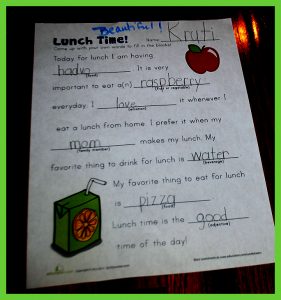 Beautiful!
Lunch Time!
Name: Kruti
Come up with your own words to fill in the blanks!
Today for lunch I am having
hadvo. It is very
(food)
important to eat a(n) raspberry
(fruit or vegetable)
everyday. I love it whenever I
eat a lunch from home. I prefer it when my
mom makes my lunch. My
(family member)
favorite thing to drink for lunch is water.
(beverage)
My favorite thing to eat for
lunch is pizza.
(food)
Lunch time is the good
(adjective)
time of the day!